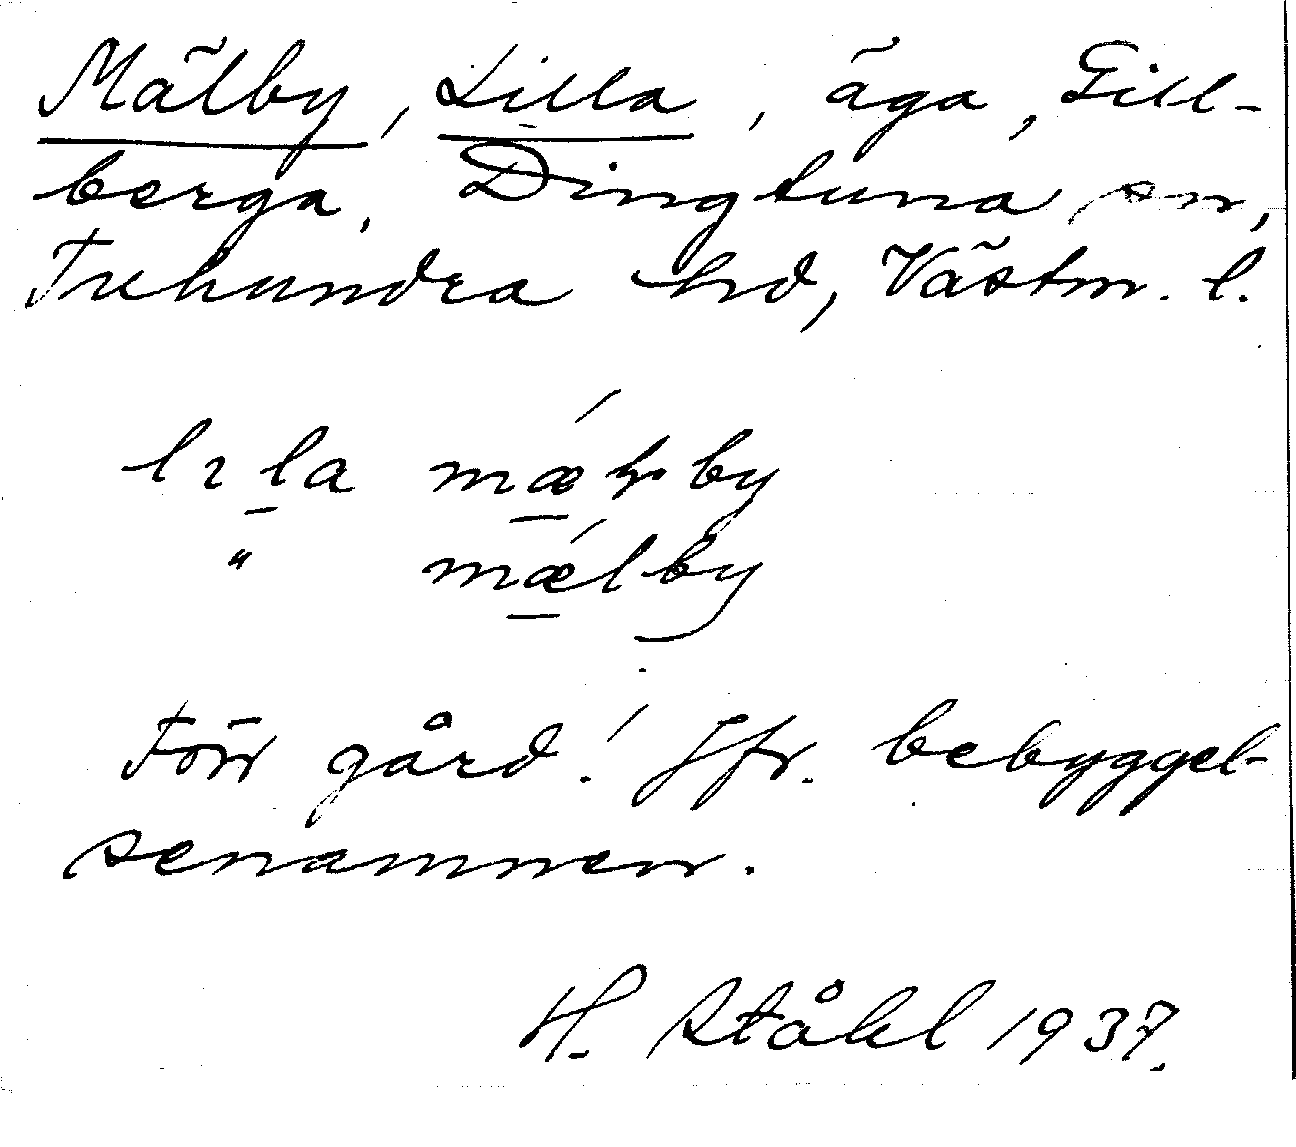 Mälby, Lilla, äga, Gill-
berga, Dingtuna sn,
Tuhundra hd, Västm. l.
lɩla by
" mǽlby
Förr gård! Jfr. bebyggel-
senamnen.
H. Ståhl 1937.